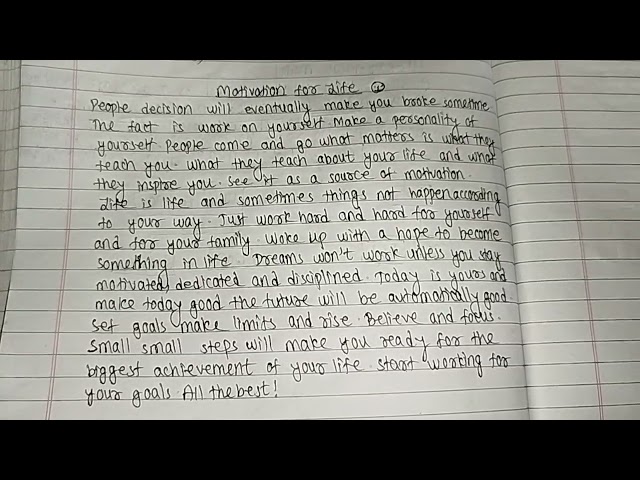 Motivation for Life ☺
People decision will eventually make you broke sometime.
The fact is work on yourself Make a personality of
yourself People come and go what matters is what they
teach you. what they teach about your life and what
they inspire you. See it as a source of motivation.
Life is life and sometimes things not happen according
to your way. Just work hard and hard for yourself
and for your family. Woke up with a hope to become
something in life. Dreams won't work unless you stay
motivated, dedicated and disciplined. Today is yours and
make today good the future will be automatically good.
Set goals make limits and rise. Believe and focus.
Small small steps will make you ready for the
biggest achievement of your life. start working for
your goals. All the best!